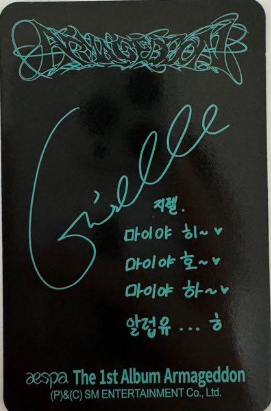 ARMAGEDDON
Giselle
지젤.
마이야 히~♥
마이야 호~♥
마이야 하~♥
알럽유... ㅎ
aespa The 1st Album Armageddon
(P)&(C) SM ENTERTAINMENT Co., Ltd.